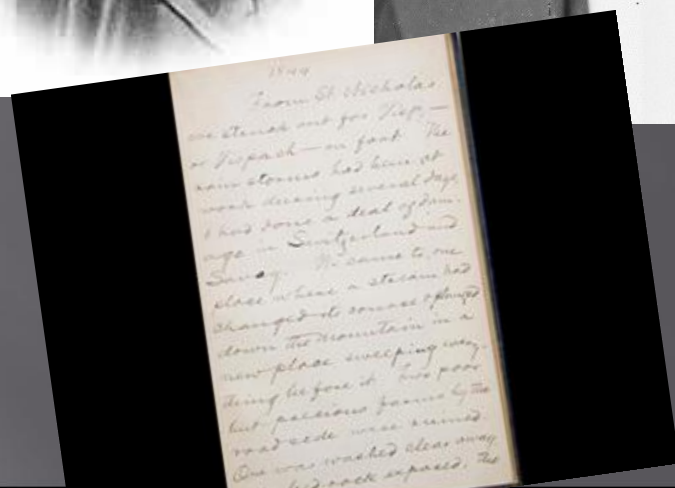 1844
From St Nicholas
we struck out for Visp, —
or Vispach — on foot. The
rain storms had been at
work during several days,
& had done a deal of dam-
age in Switzerland and
Savoy. We came to one
place where a stream had
changed its course & plunged
down the mountain in a
new place, sweeping every-
thing before it. Two poor
but precious farms by the
road side were ruined.
One was washed clear away
bed-rock exposed. The